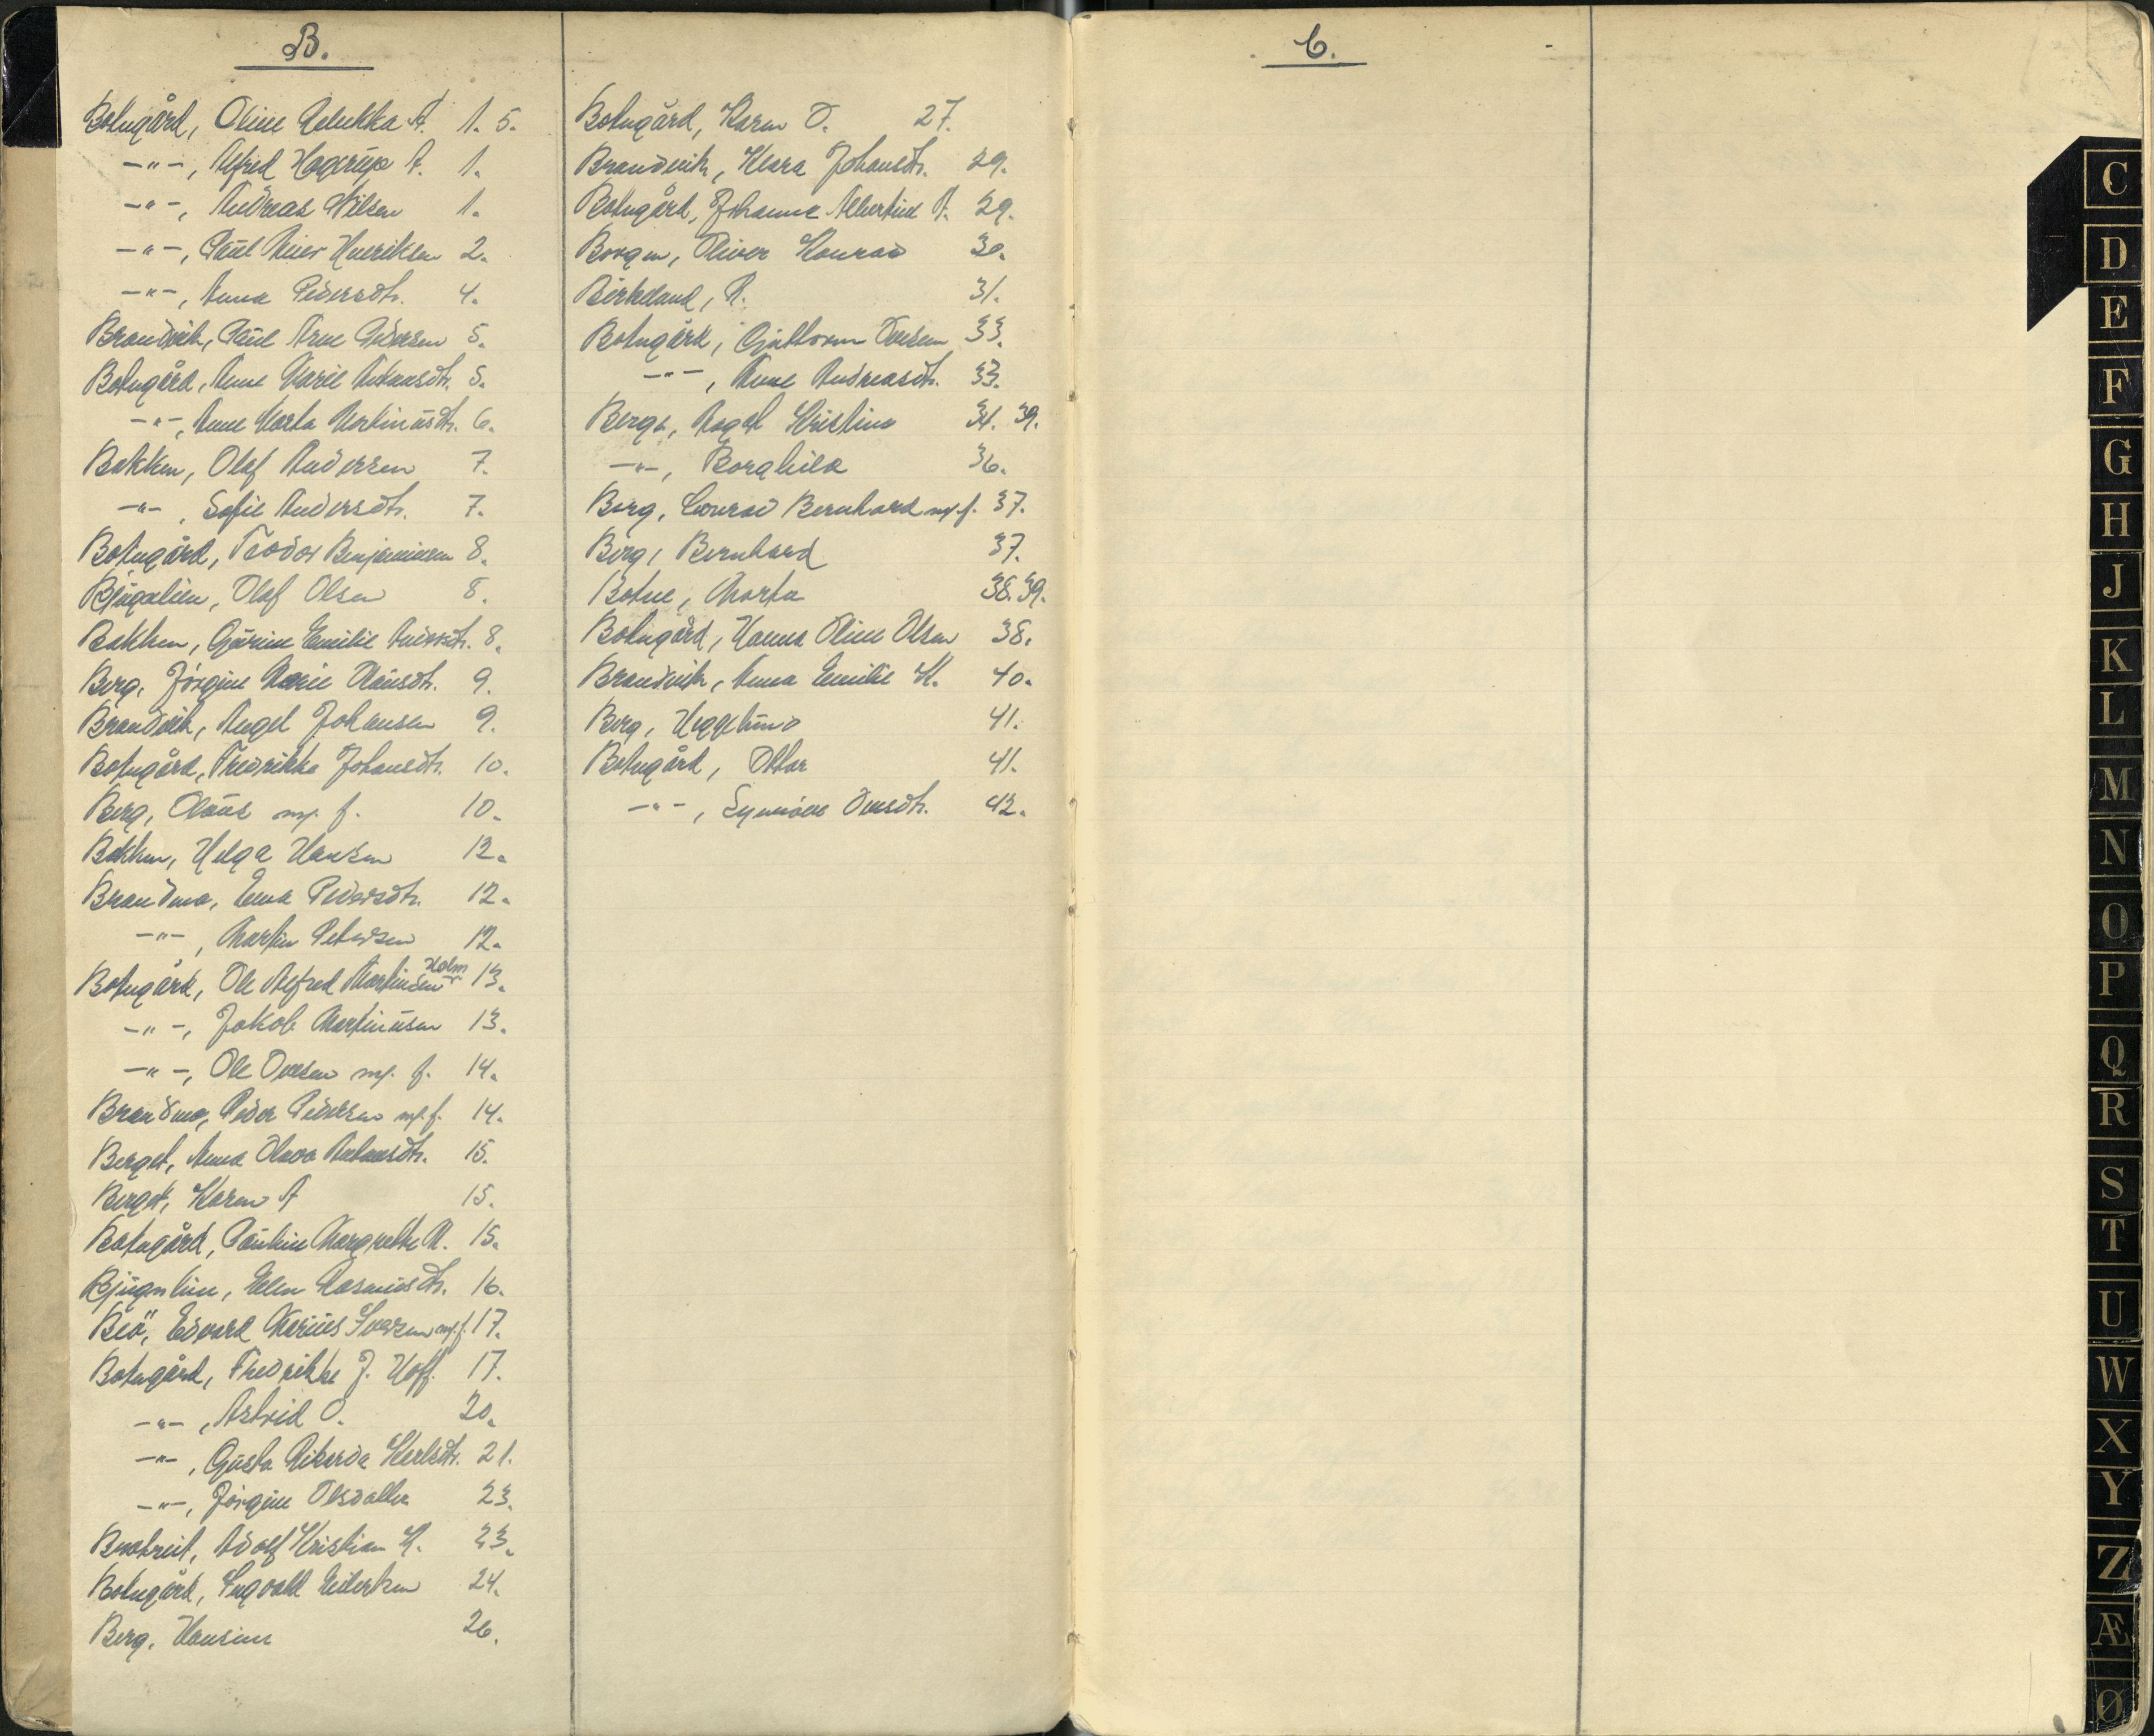 B.
Botngård, Oline Rebekka A. 1. 5.
-"-, Alfred Hagerup A. 1.
-"-, Andreas Nilsen 1.
-"-, Paul Henriksen 2.
-"-, Anna Pedersdtr. 4.
Brandvik, Paul Arne Pedersen 5.
Botngård, Anne Marie Antonsdtr. 5.
-"-, Anne Marta Martinusdtr. 6.
Bakken, Olaf Andersen 7.
-"-, Sofie Andersdtr. 7.
Botngård, Teodor Benjaminsen 8.
Bjugnlien, Olaf Olsen 8.
Bakken, Gurine Emilie Andersdtr. 8.
Berg, Jörgine Marie Clausdtr. 9.
Brandvik, Angel Johansen 9.
Botngård, Fredrikke Johansdtr. 10.
Berg, Claus m. f. 10.
Bakken, Helga Hansen 12.
Brandmo, Enna Pedersdtr. 12.
-"-, Martin Petersen 12.
Botngård, Ole Alfred Martinsen Holm 13.
-"-, Jakob Martinusen 13.
-"-, Ole Ovesen m. f. 14.
Brandmo, Peder Pedersen m. f. 14.
Berget, Anna Olava Antonsdtr. 15.
Berget, Karen A 15.
Botngård, Pauline Margrethe M. 15.
Bjugnlien, Elen Rasmusdtr. 16.
Beö, Edvard Marius Iversen m. f. 17.
Botngård, Fredrikke J. Hoff. 17.
-"-, Astrid O. 20.
-"-, Gusta Rikarda Karlsdtr. 21.
-"-, Jörgine Olsdatter 23.
Adolf Kristian K. 23.
Botngård, Ingvald Eilertsen 24.
Berg, Hansine 26.
Botngård, Karen O. 27.
Brandvik, Klara Johansdtr. 29.
Botngård, Johanne Albertine A. 29.
Borgen, Oliver Konrad 30.
Birkeland, R. 31.
Botngård, Guttorm Ovesen 33.
-"-, Anne Andreasdtr. 33.
Berge, Aagot Kristine 34. 39.
-"-, Borghild 36.
Berg, Conrad Bernhard m. f. 37.
Berg, Bernhard 37.
Botne, Marta 38. 39.
Botngård, Hanna Oline Olsen 38.
Brandvik, Anna Emilie K. 40.
Berg, Heggelund 41.
Botngård, Ottar 41.
-"-, Synnöve Ovesdtr. 42.
C.
C
D
E
F
G
H
J
K
L
M
N
O
P
Q
R
S
T
U
W
X
Y
Z
Æ
Ø